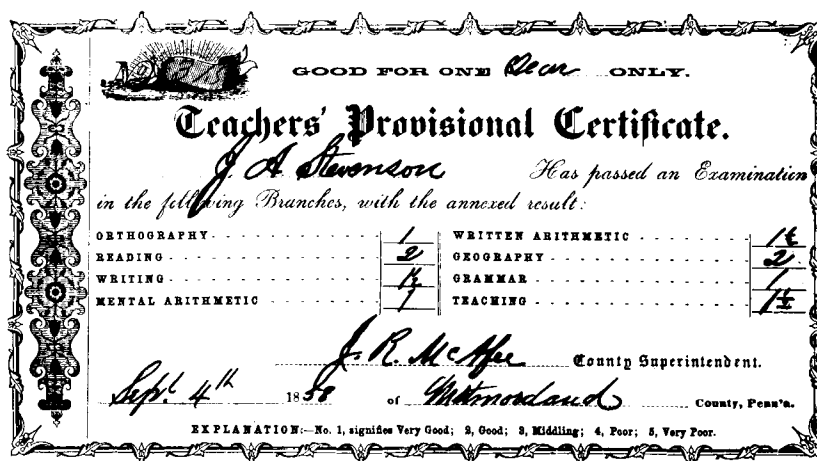 GOOD FOR ONE Year ONLY.
Teachers' Provisional Certificate.
J. A. Stevenson Has passed an Examination
in the following Branches, with the annexed result:
ORTHOGRAPHY 1 WRITTEN ARITHMETIC 1½
READING 2 GEOGRAPHY 2
WRITING 1½ GRAMMAR 1
MENTAL ARITHMETIC 1 TEACHING 1½
J. R. McAfee County Superintendent.
Sept 4th 1858 of Westmoreland County, Penn'a.
EXPLANATION:—No. 1, signifies Very Good; 2, Good; 3, Middling; 4, Poor; 5, Very Poor.